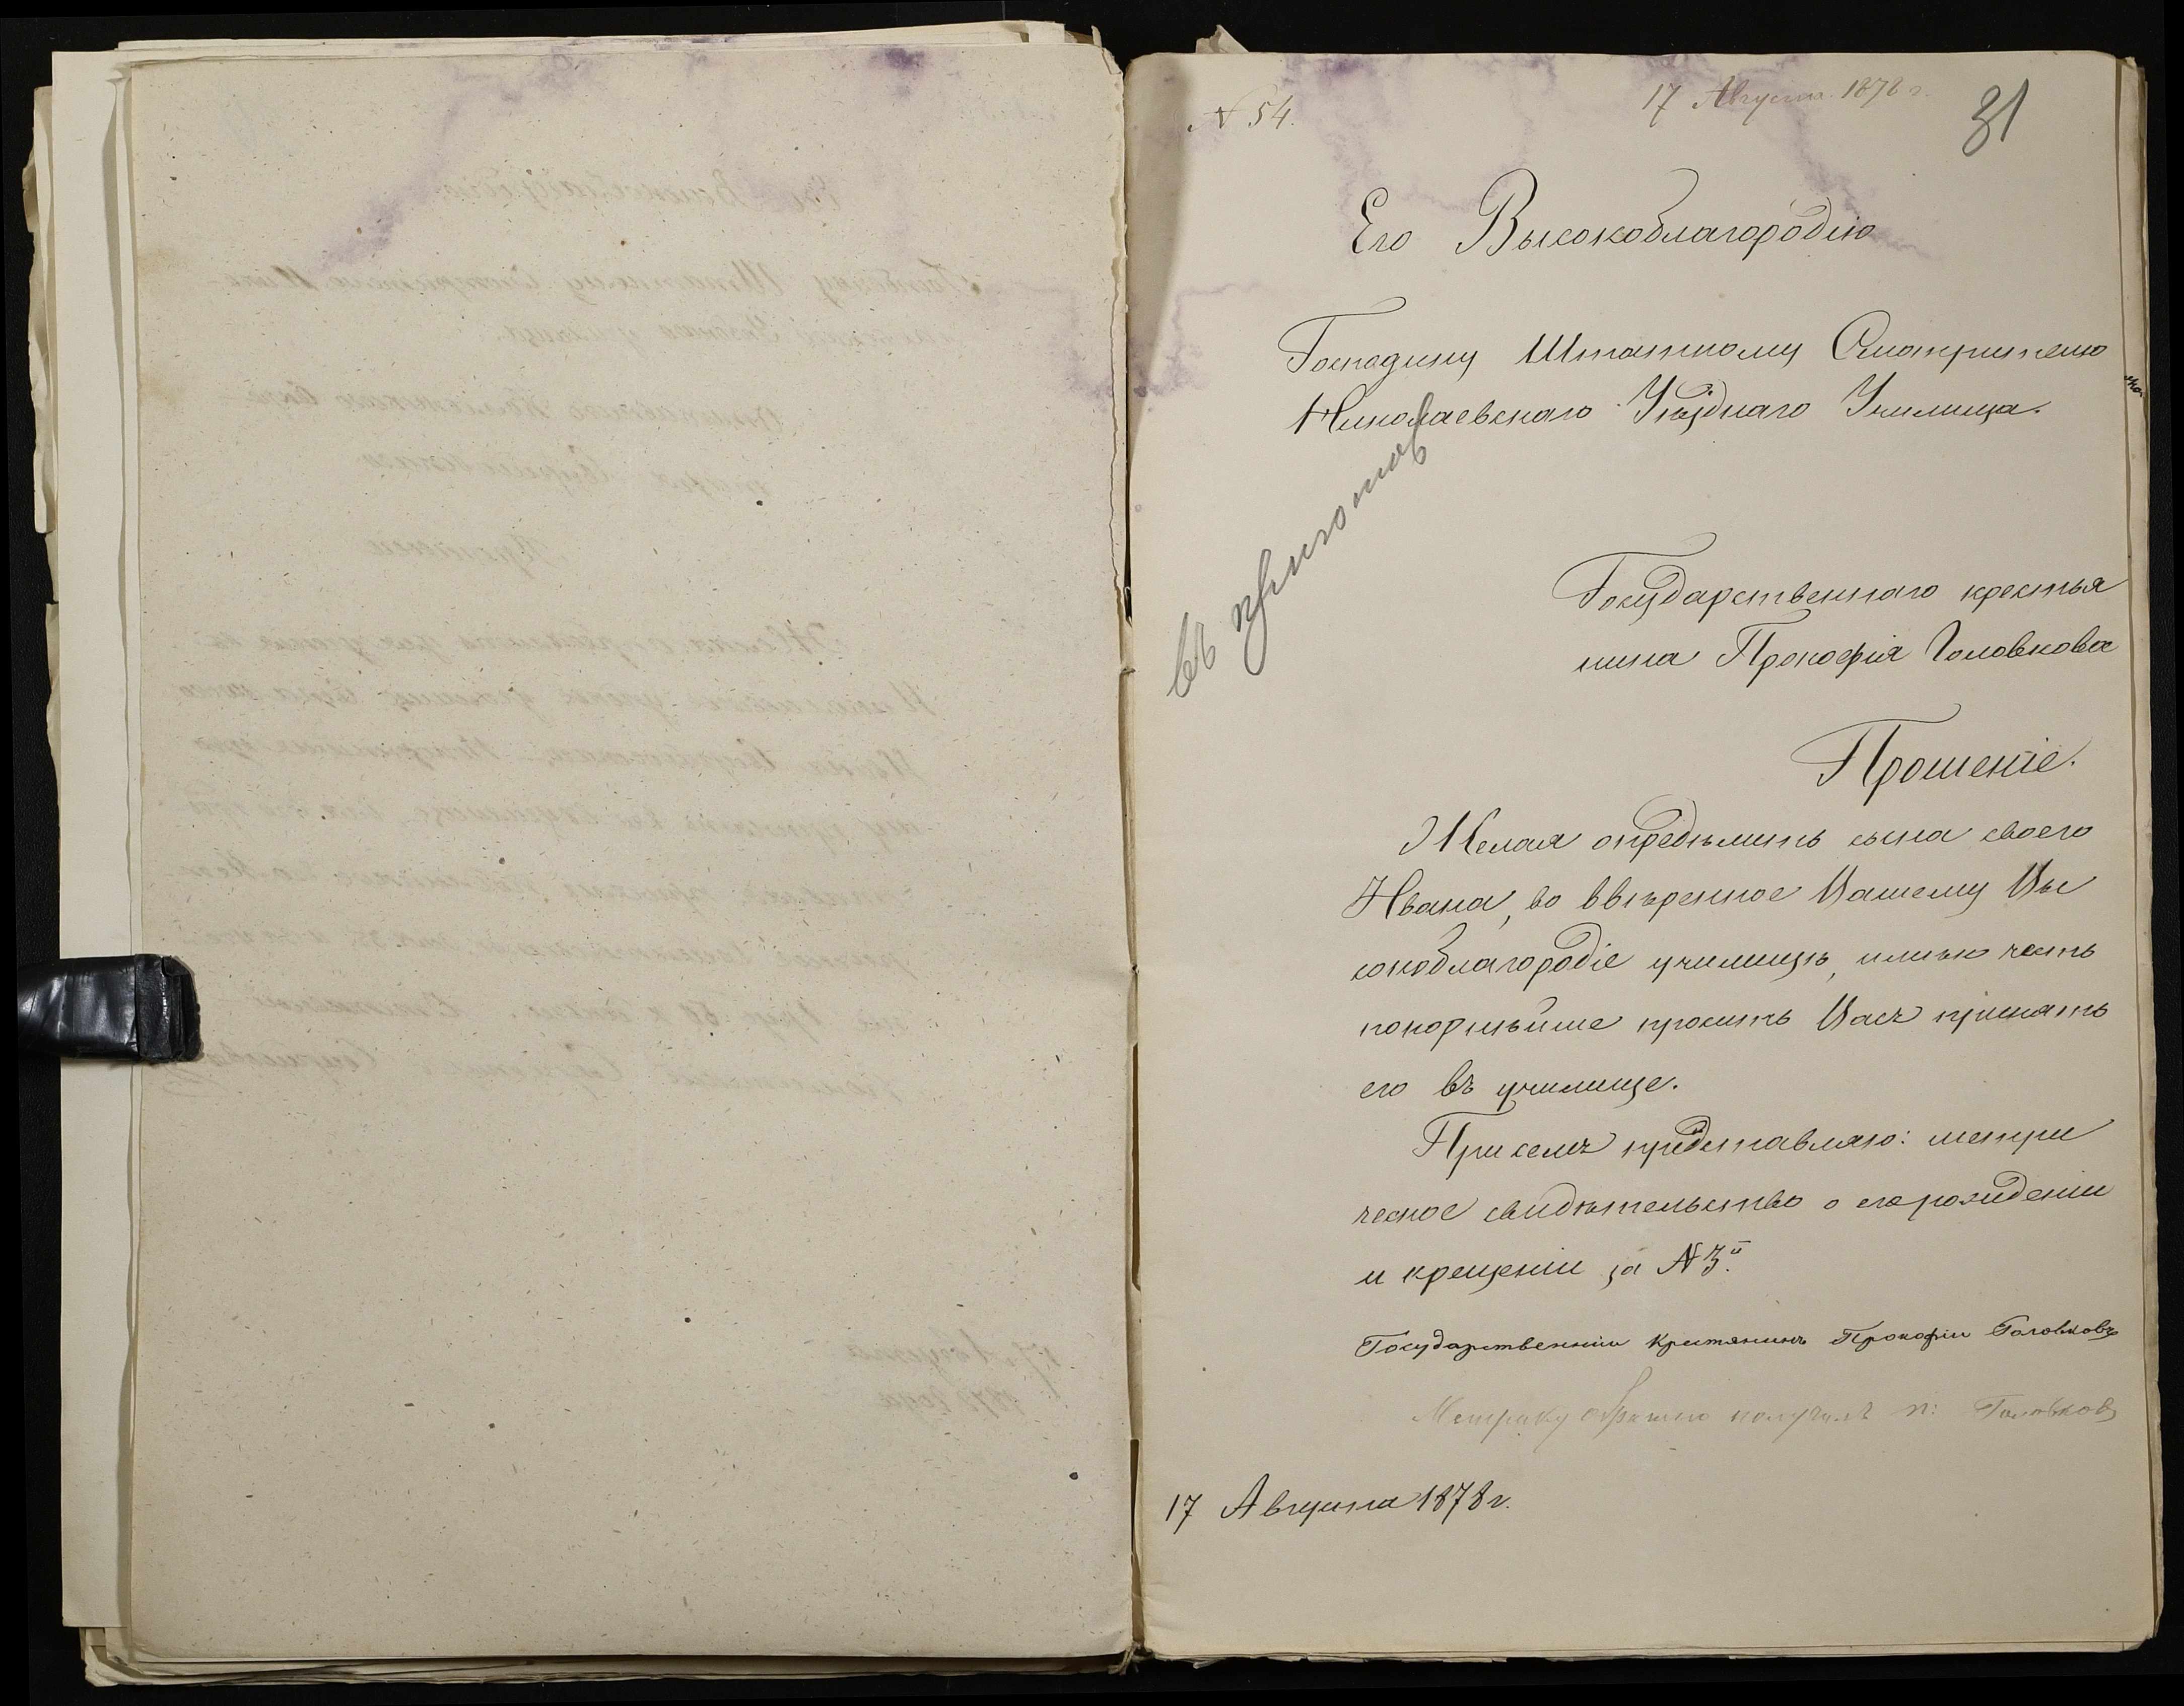 № 54.
17 Августа 1878 г.
31
Его Высокоблагородію
Господину Штатному Смотрителю
Николаевскаго Уѣзднаго Училища.
въ приготов
Государственнаго крестья
нина Прокофія Головкова
Прошеніе.
Желая опредѣлить сына своего
Ивана, во ввѣренное Вашему Вы
сокоблагородіе училищѣ, имѣю честь
покорнѣйше просить Васъ принять
его въ училище.
При семъ представляю: метри
ческое свидѣтельство о его рожденіи
и крещеніи за №3.й
Государственніи Крестянинъ Прокофіи Головковъ
Метрику обратно получилъ П: Головковъ
17 Августа 1878 г.